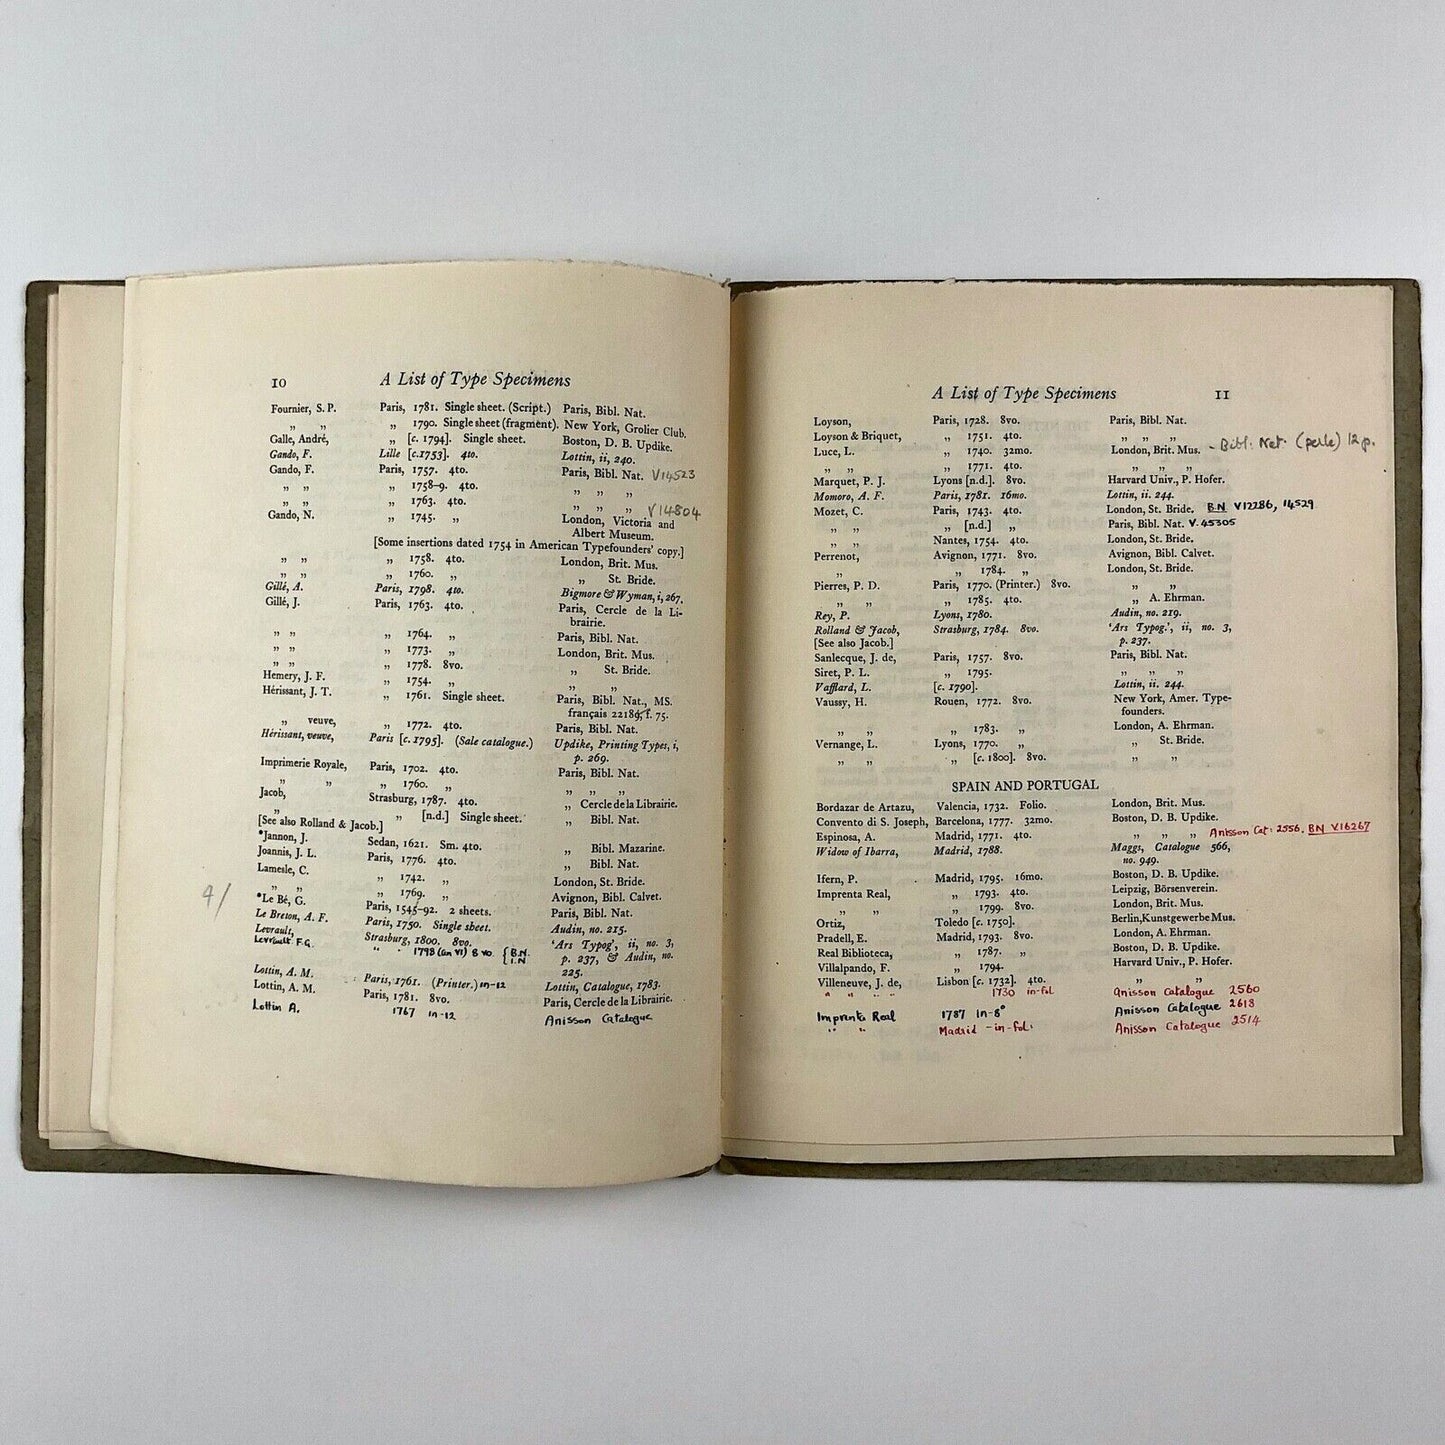 10 A List of Type Specimens
Fournier, S. P. Paris, 1781. Single sheet. (Script.) Paris, Bibl. Nat.
„ „ „ 1790. Single sheet (fragment). New York, Grolier Club.
Galle, André, „ [c. 1794]. Single sheet. Boston, D. B. Updike.
Gando, F. Lille [c.1753]. 4to. Lottin, ii, 240.
Gando, F. Paris, 1757. 4to. Paris, Bibl. Nat. V14523
„ „ „ 1758-9. 4to. „ „ „
„ „ „ 1763. 4to. „ „ „ V14804
Gando, N. „ 1745. „ London, Victoria and
Albert Museum.
[Some insertions dated 1754 in American Typefounders' copy.]
„ „ „ 1758. 4to. London, Brit. Mus.
„ „ „ 1760. „ „ St. Bride.
Gillé, A. Paris, 1798. 4to. Bigmore & Wyman, i, 267.
Gillé, J. Paris, 1763. 4to. Paris, Cercle de la Li-
brairie.
„ „ „ 1764. „ Paris, Bibl. Nat.
„ „ „ 1773. „ London, Brit. Mus.
„ „ „ 1778. 8vo. „ St. Bride.
Hemery, J. F. „ 1754. „ „ „
Hérissant, J. T. „ 1761. Single sheet. Paris, Bibl. Nat., MS.
français 22189, f. 75.
„ veuve, „ 1772. 4to. Paris, Bibl. Nat.
Hérissant, veuve, Paris [c. 1795]. (Sale catalogue.) Updike, Printing Types, i,
p. 269.
Imprimerie Royale, Paris, 1702. 4to. Paris, Bibl. Nat.
„ „ „ 1760. „ „ „ „
Jacob, Strasburg, 1787. 4to. „ Cercle de la Librairie.
„ „ [n.d.] Single sheet. „ Bibl. Nat.
[See also Rolland & Jacob.]
*Jannon, J. Sedan, 1621. Sm. 4to. „ Bibl. Mazarine.
Joannis, J. L. Paris, 1776. 4to. „ Bibl. Nat.
Lamesle, C. „ 1742. „ London, St. Bride.
„ „ „ 1769. „ Avignon, Bibl. Calvet.
*Le Bé, G. Paris, 1545-92. 2 sheets. Paris, Bibl. Nat.
Le Breton, A. F. Paris, 1750. Single sheet. Audin, no. 215.
Levrault, Strasburg, 1800. 8vo. 'Ars Typog', ii, no. 3,
Levrault F.G. „ „ 1798 (an VI) 8vo { B.N. I.N p. 237, & Audin, no.
225.
Lottin, A. M. Paris, 1761. (Printer.) in-12 Lottin, Catalogue, 1783.
Lottin, A. M. Paris, 1781. 8vo. Paris, Cercle de la Librairie.
Lottin A. 1767 in-12 Anisson Catalogue
A List of Type Specimens 11
Loyson, Paris, 1728. 8vo. Paris, Bibl. Nat.
Loyson & Briquet, „ 1751. 4to. „ „ „
Luce, L. „ 1740. 32mo. London, Brit. Mus. - Bibl. Nat. (perle) 12 p.
„ „ „ 1771. 4to. „ „ „
Marquet, P. J. Lyons [n.d.]. 8vo. Harvard Univ., P. Hofer.
Momoro, A. F. Paris, 1781. 16mo. Lottin, ii. 244.
Mozet, C. Paris, 1743. 4to. London, St. Bride. B.N V12286, 14529
„ „ „ [n.d.] „ Paris, Bibl. Nat. V.45305
Nantes, 1754. 4to. London, St. Bride.
Perrenot, Avignon, 1771. 8vo. Avignon, Bibl. Calvet.
„ „ 1784. „ London, St. Bride.
Pierres, P. D. Paris, 1770. (Printer.) 8vo. „ „
„ „ „ 1785. 4to. „ A. Ehrman.
Rey, P. Lyons, 1780. Audin, no. 219.
Rolland & Jacob, Strasburg, 1784. 8vo. 'Ars Typog.', ii, no. 3,
[See also Jacob.] p. 237.
Sanlecque, J. de, Paris, 1757. 8vo. Paris, Bibl. Nat.
Siret, P. L. „ 1795. „ „ „
Vafflard, L. [c. 1790]. Lottin, ii. 244.
Vaussy, H. Rouen, 1772. 8vo. New York, Amer. Type-
founders.
„ „ „ 1783. „ London, A. Ehrman.
Vernange, L. Lyons, 1770. „ „ St. Bride.
„ „ „ [c. 1800]. 8vo. „ „
SPAIN AND PORTUGAL
Bordazar de Artazu, Valencia, 1732. Folio. London, Brit. Mus.
Convento di S. Joseph, Barcelona, 1777. 32mo. Boston, D. B. Updike.
Espinosa, A. Madrid, 1771. 4to. „ „ „ Anisson Cat: 2556. BN V.16267
Widow of Ibarra, Madrid, 1788. Maggs, Catalogue 566,
no. 949.
Ifern, P. Madrid, 1795. 16mo. Boston, D. B. Updike.
Imprenta Real, „ 1793. 4to. Leipzig, Börsenverein.
„ „ „ 1799. 8vo. London, Brit. Mus.
Ortiz, Toledo [c. 1750]. Berlin, Kunstgewerbe Mus.
Pradell, E. Madrid, 1793. 8vo. London, A. Ehrman.
Real Biblioteca, „ 1787. „ Boston, D. B. Updike.
Villalpando, F. „ 1794. Harvard Univ., P. Hofer.
Villeneuve, J. de, Lisbon [c. 1732]. 4to. „ „
„ „ „ 1730 in-fol Anisson Catalogue 2560
Imprenta Real 1787 in-8° Anisson Catalogue 2618
„ „ Madrid - in-fol: Anisson Catalogue 2514